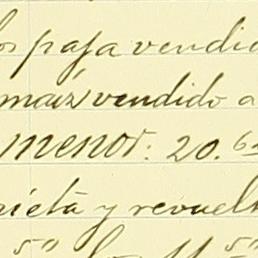 os paja vendid
maíz vendido a
menor: 20.6
rieta y revuelt